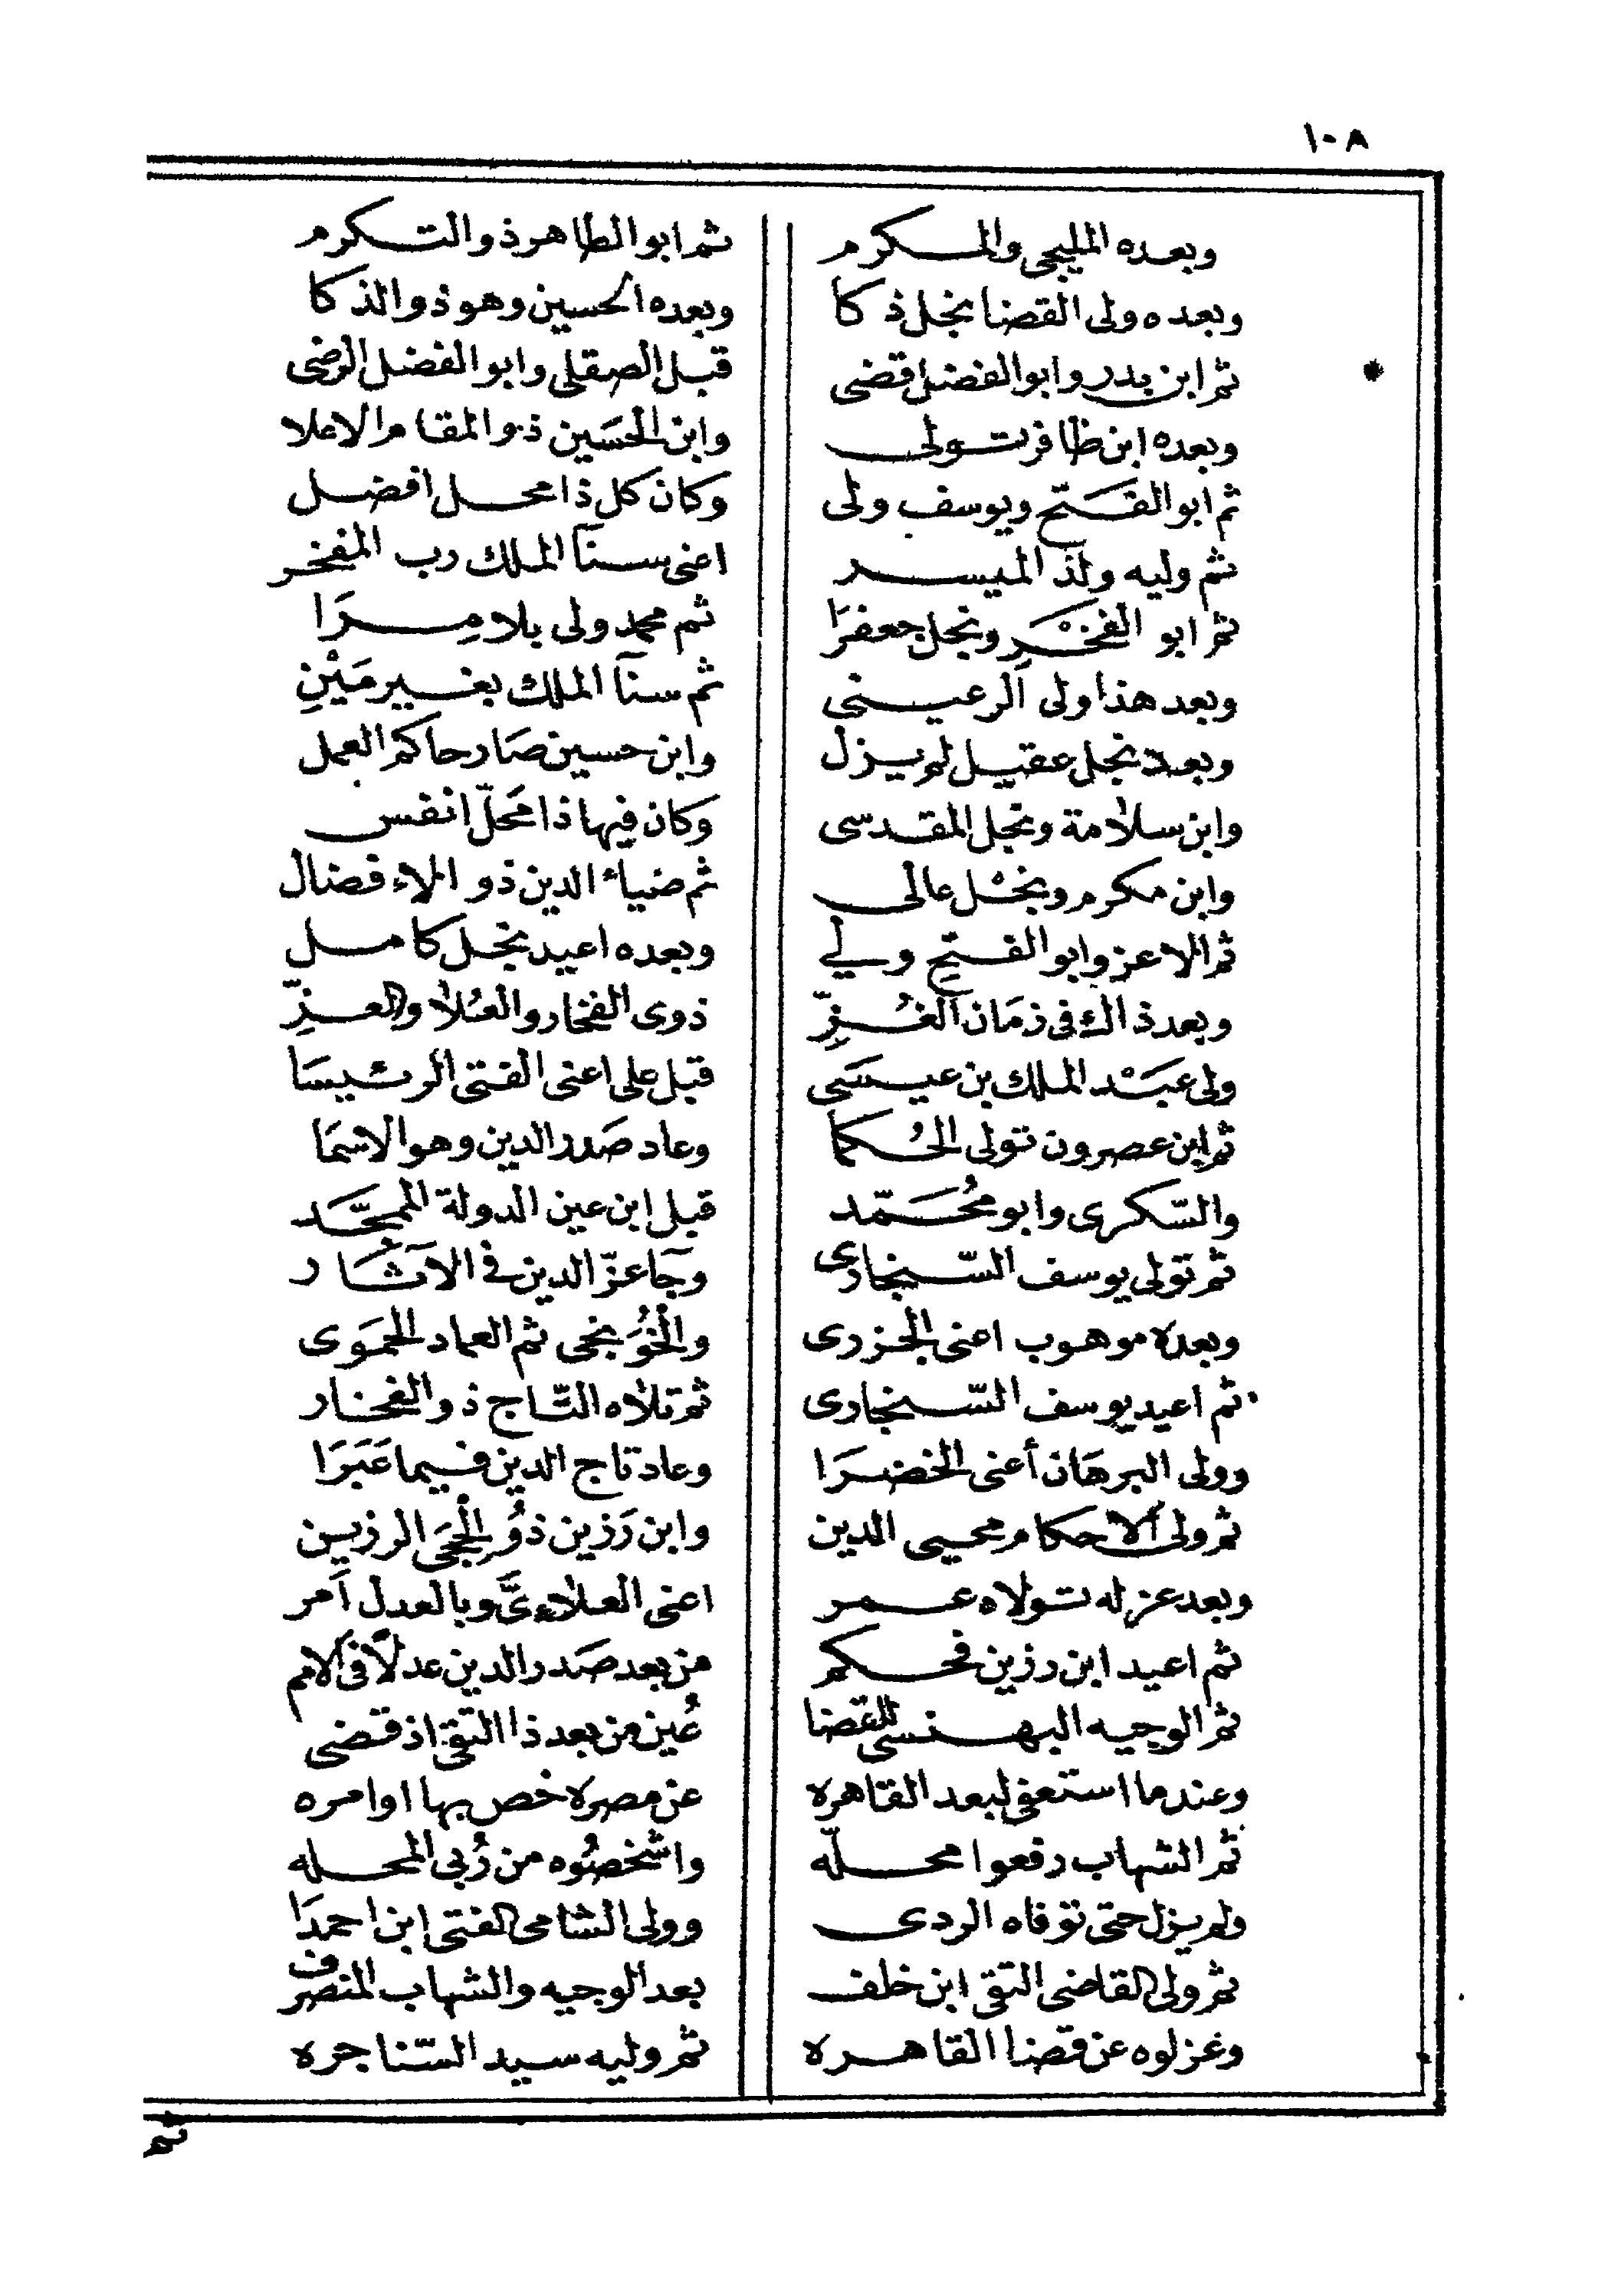 ١٠٨
وبعده المليجى والمكرم ثم ابو الطاهر ذو التكرم
وبعده ولى القضا نجل ذكا وبعده الحسين وهو ذو الذكا
ثم ابن بدر وابو الفضل قضى قبل الصقلى وابو الفضل الرضى
وبعده ابن ظافر تولى وابن الحسين ذو المقام الاعلا
ثم ابو الفتح ويوسف ولى وكان كل ذا محل افضل
ثم وليه ولد الميسر اعنى سنآ الملك رب المفخر
ثم ابو الفخر ونجل جعفرا ثم محمد ولى بلا مرا
وبعد هذا ولى الرعينى ثم سنآ الملك بغير مين
وبعد نجل عقيل لم يزل وابن حسين صار حاكم العمل
وابن سلامة ونجل المقدسى وكان فيها ذا محلّ انفس
وابن مكرم ونجل عالى ثم ضياء الدين ذو الافضال
ثم الاعز وابو الفتح ولي وبعده اعيد نجل كامل
وبعد ذاك فى زمان الغُزِّ ذوى الفخار والعُلا والعزِّ
ولى عبد الملك بن عيسى قبل على اعنى الفتى الرئيسا
ثم ابن عصرون تولى الحُكما وعاد صدر الدين وهو الاسما
والسّكرى وابو محُمّد قبل ابن عين الدولة الممجّد
ثم تولى يوسف السّنجارى وجآ عزّ الدين في الآثار
وبعده موهوب اعنى الجزرى والخُوَنجى ثم العماد الحموى
ثم اعيد يوسف السّنجارى ثم تلاه التّاج ذو الفخار
وولى البرهان أعنى الخضرا وعاد تاج الدين فيما غبرا
ثم ولى الاحكام محيى الدين وابن رَزين ذوُ الحِجَى الرزين
وبعد عزله تولاه عمر اعنى العلاءىَّ وبالعدل امر
ثم اعيد ابن رزين فحكم من بعد صدر الدين عدلاً فى الامم
ثم الوجيه البهنسى للقضا عُين من بعد ذا التقى اذ قضى
وعندما استعفى لبعد القاهره عن مصره خص بها اوامره
ثم الشهاب رفعوا محلّه واشخصُوه من رُبى المحله
ولم يزل حتى توفاه الردى وولى الشامى الفتى ابن احمدا
ثم ولى القاضى التقى ابن خلف بعد الوجيه والشهاب المنصرف
وعزلوه عن قضا القاهره ثم وليه سيد السّناجره
ثم